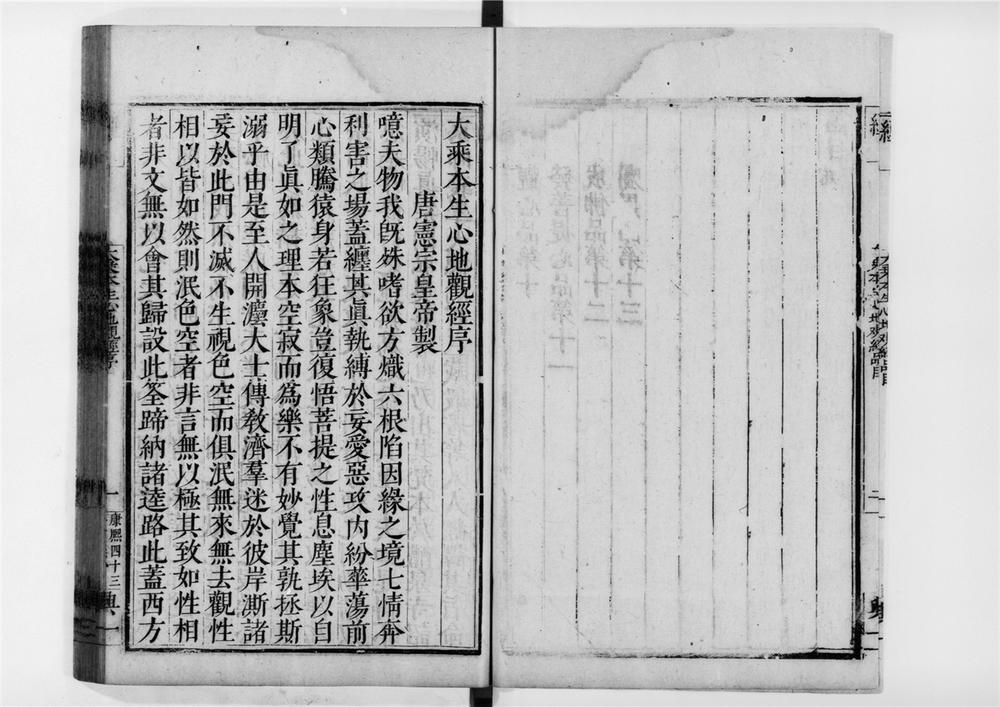 大乘本生心地觀經序
唐憲宗皇帝製
噫夫物我旣殊嗜欲方熾六根陷因緣之境七情奔
利害之場蓋纏其眞執縛於妄愛惡攻內紛華蕩前
心類騰猿身若狂象豈復悟菩提之性息塵埃以自
明了眞如之理本空寂而爲樂不有妙覺其孰拯斯
溺乎由是至人開灋大士傳敎濟羣迷於彼岸澌諸
妄於此門不滅不生視色空而俱泯無來無去觀性
相以皆如然則泯色空者非言無以極其致如性相
者非文無以會其歸設此筌蹄納諸逵路此蓋西方
大乘本生心地觀經序
一
康熙四十三
典一